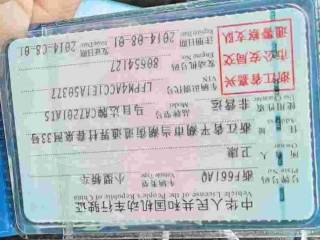 中华人民共和国机动车行驶证
Vehicle License of the People's Republic of China
号牌号码
Plate No.
浙F661A0
车辆类型
Vehicle Type
小型轿车
所有人
Owner
卫康
住址
Address
浙江省平湖市当湖街道
333号
使用性质
Use Character
非营运
品牌型号
Model
马自达牌CA7201AT5
车辆识别代号
VIN
LFPH4ACC1E1A58377
发动机号码
Engine No.
80654127
注册日期
Register Date
2014-08-01
发证日期
Issue Date
2014-08-01
浙江省嘉兴
市公安局交
通警察支队